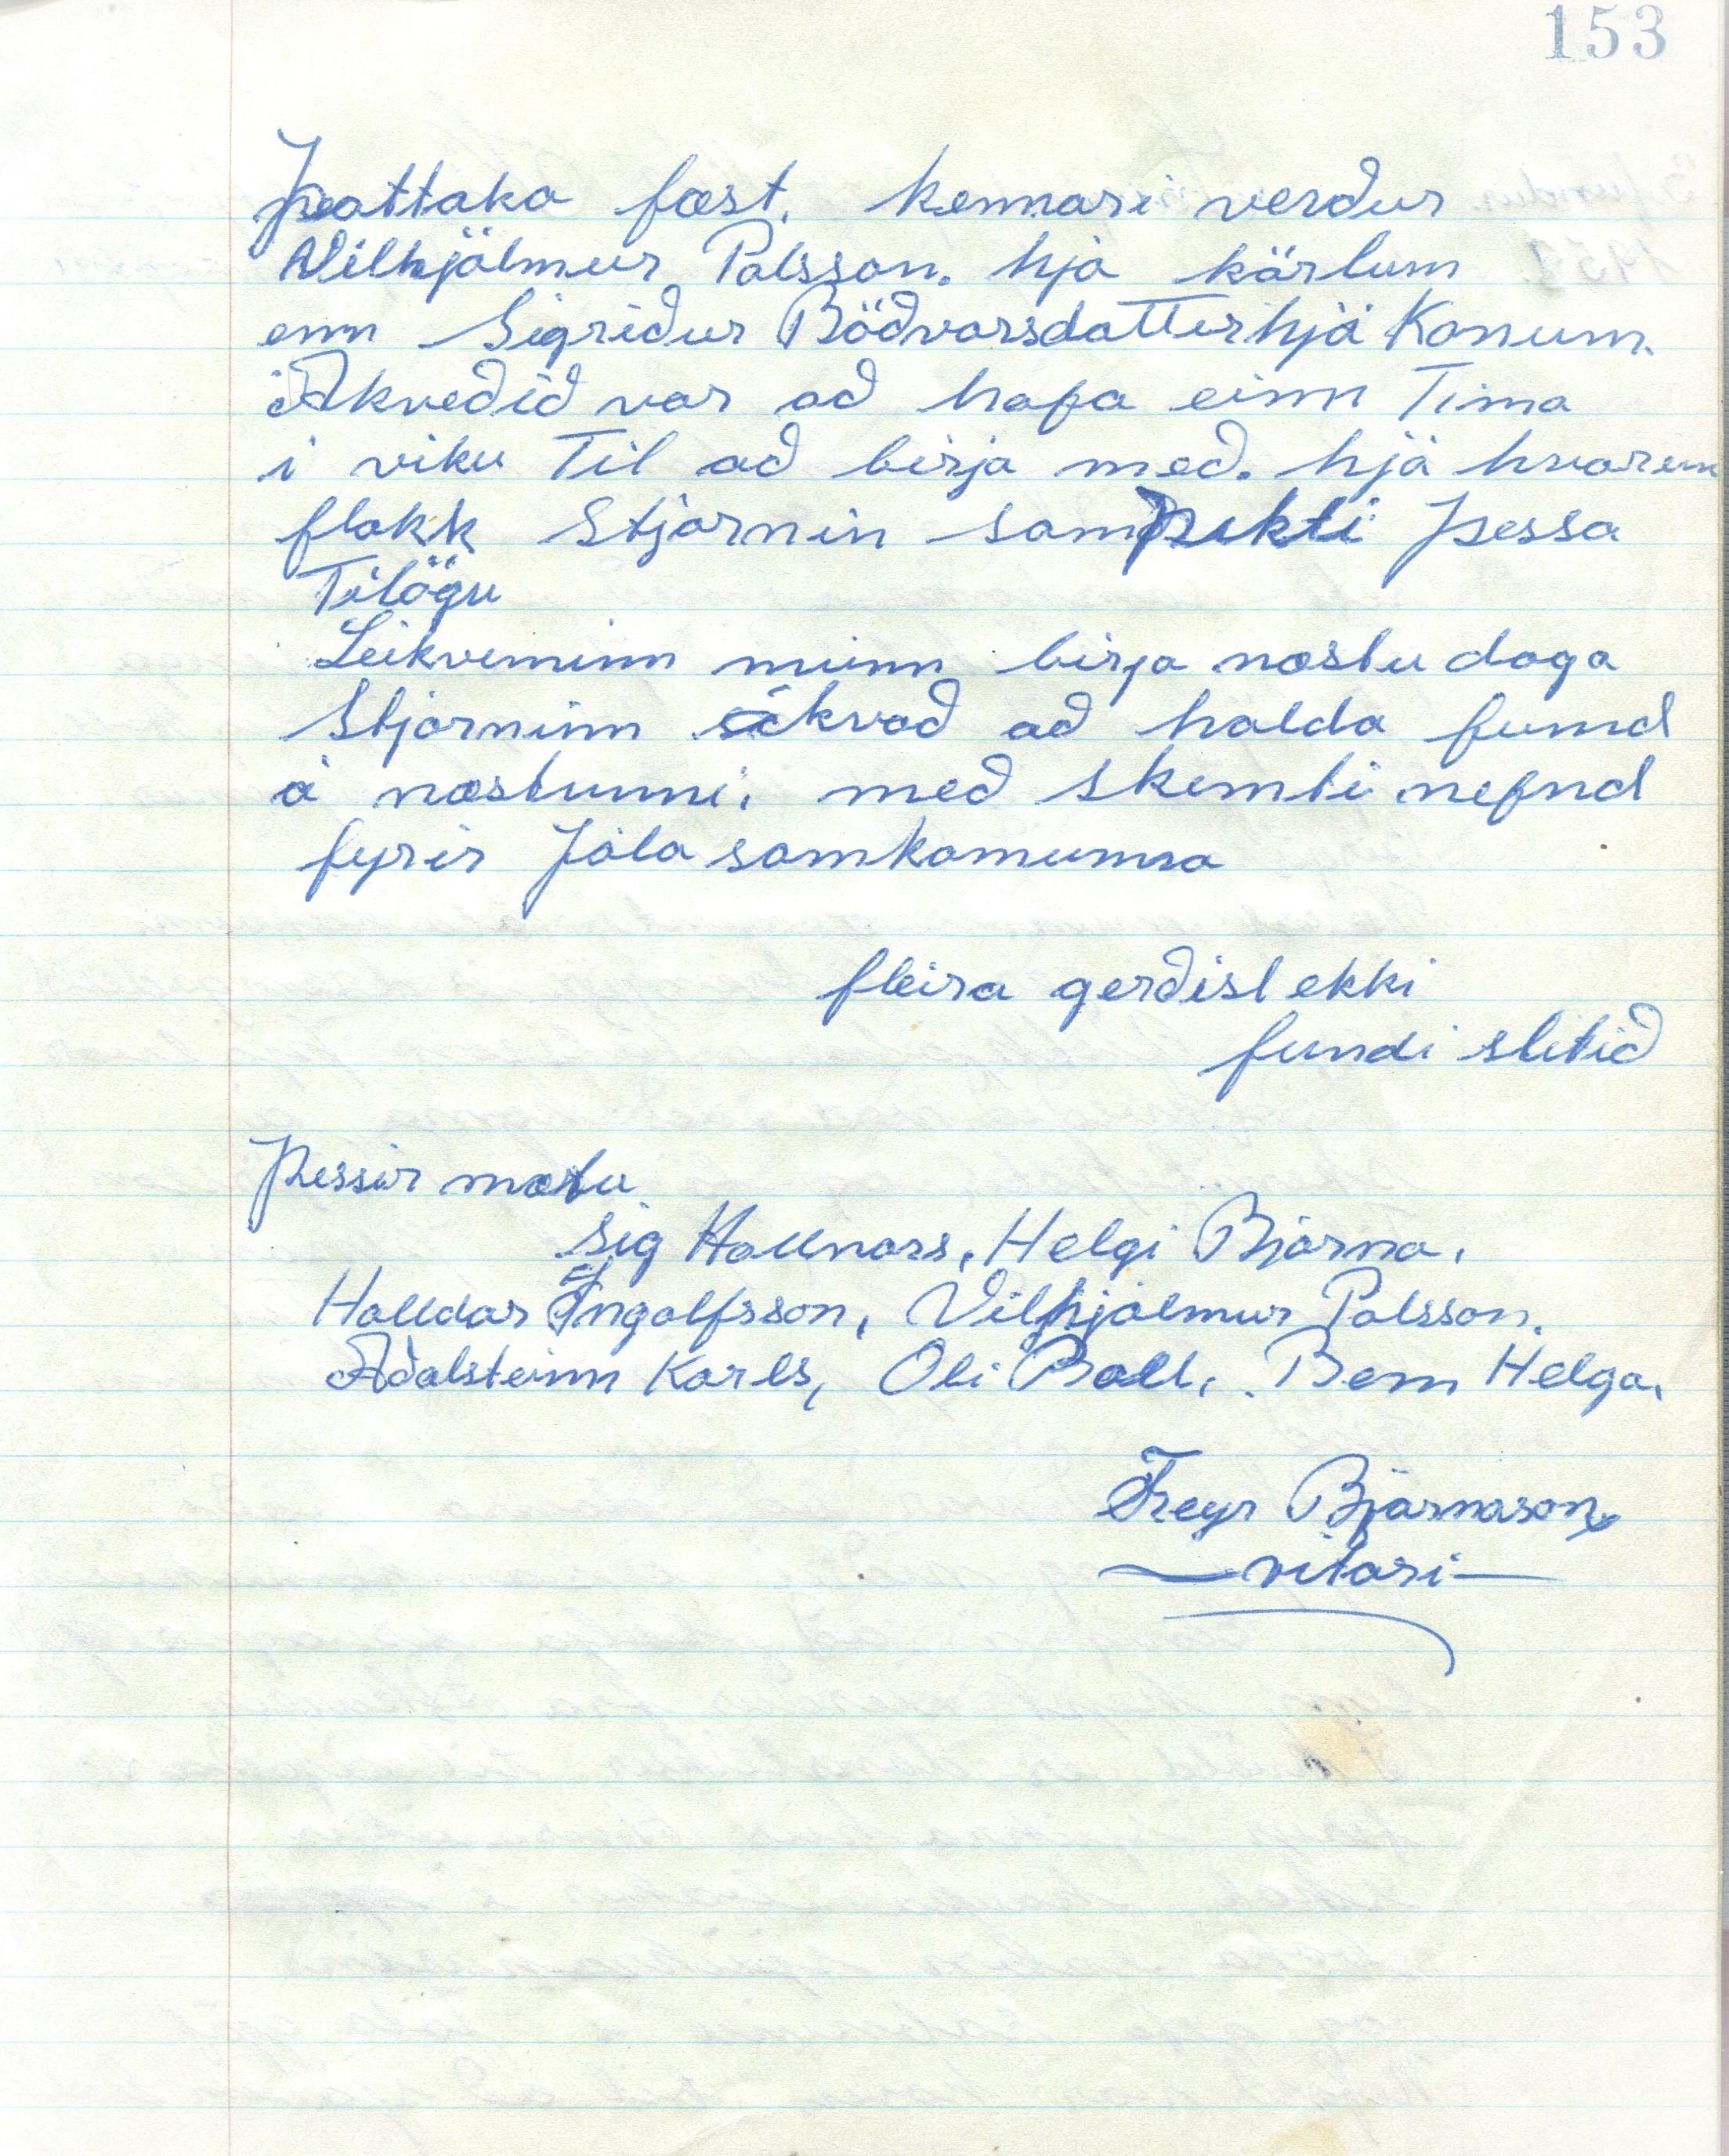 153
þáttaka fæst. kennari verður
Vilhjálmur Pálsson. hjá kärlum
enn Sigriður Böðvarsdatter hjá Konum.
Ákveðið var að hafa einn Tima
i viku Til að birja með. hjá hvorum
flokk Stjornin samþikti þessa
Tilögu
Leikveminn munn birja næstu daga
Stjorninn ákvað að halda fund
á næstunni. með skemti nefnd
fyrir Jóla samkomunna
fleira gerðist ekki
fundi slitið
Þessir mættu
Sig Hallmars, Helgi Bjarna,
Halldor Ingolfsson, Vilhjalmur Palsson.
Aðalsteinn Karls, Oli Pall, Bem Helga,
Freyr Bjarnason
ritari